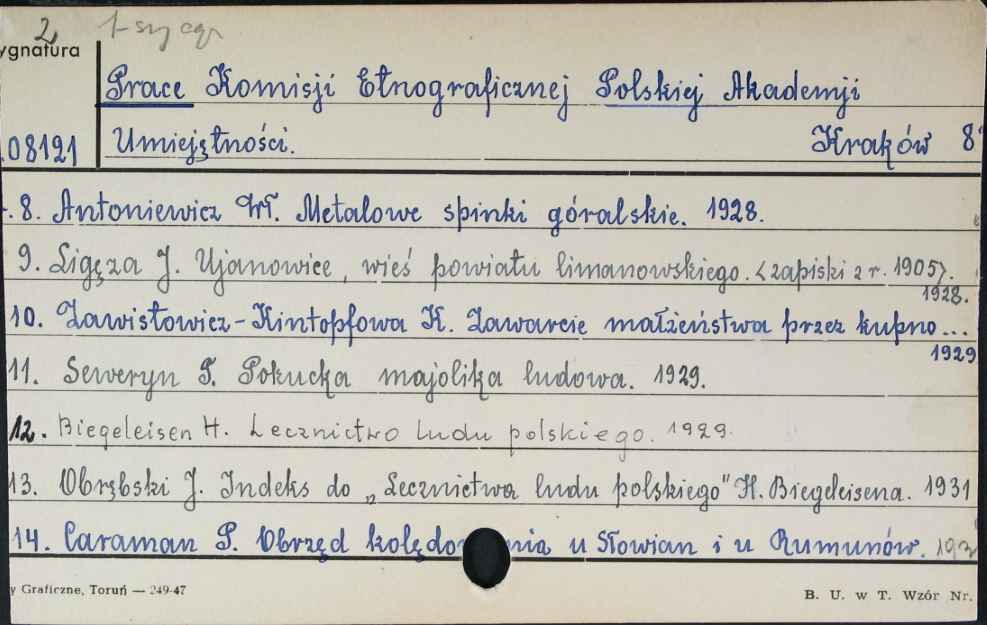 2 1-szy egz.
ygnatura
Prace Komisji Etnograficznej Polskiej Akademji
08121 Umiejętności. Kraków 8°
8. Antoniewicz Wł. Metalowe spinki góralskie. 1928.
9. Ligęza J. Ujanowice, wieś powiatu limanowskiego. <zapiski z r. 1905>.
1928.
10. Zawistowicz-Kintopfowa K. Zawarcie małżeństwa przez kupno...
1929
11. Seweryn T. Pokucka majolika ludowa. 1929.
12. Biegeleisen H. Lecznictwo ludu polskiego. 1929.
13. Obrębski J. Indeks do „Lecznictwa ludu polskiego" H. Biegeleisena. 1931
14. Caraman P. Obrzęd kolędo nia u Słowian i u Rumunów. 193
y Graficzne, Toruń — 249-47
B. U. w T. Wzór Nr.